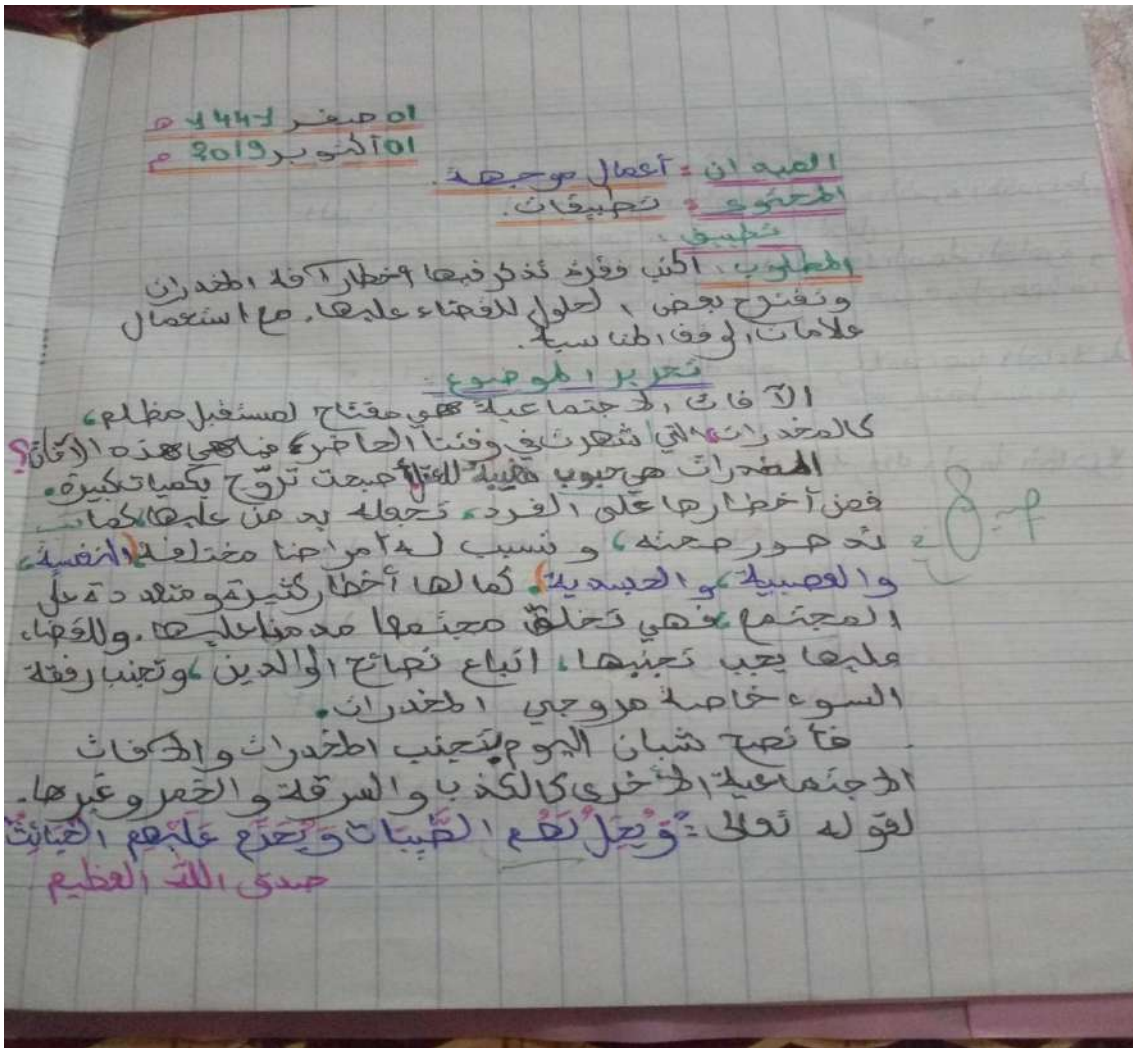 01 صفر 1441 ه
01 أكتوبر 2019 م
الميدان = أعمال موجهة.
المحتوى = تطبيقات.
تطبيق
المطلوب: اكتب فقرة تذكر فيها أخطار آفة المخدرات
وتقترح بعض الحلول للقضاء عليها. مع استعمال
علامات الوقف المناسبة.
تحرير الموضوع:
الآفات الاجتماعية هي مفتاح لمستقبل مظلم،
كالمخدرات، التي شهرت في وقتنا الحاضر، فما هي هذه الآفات؟
المخدرات هي حبوب مغيبة للعقل أصبحت تروّج بكميات كبيرة.
فمن أخطارها على الفرد، تجعله يدمن عليها، كما
تدهور صحته، وتسبب له أمراضا مختلفة (النفسية،
والعصبية، والجسدية). كما لها أخطار كثيرة ومتعددة على
المجتمع، فهي تخلق مجتمعا مدمنا عليها. وللقضاء
عليها يجب تجنبها، اتباع نصائح الوالدين، وتجنب رفقة
السوء خاصة مروجي المخدرات.
فأنصح شبان اليوم بتجنب المخدرات والآفات
الاجتماعية الأخرى كالكذب والسرقة والخمر وغيرها.
لقوله تعالى: "وَيُحِلُّ لَهُم الطَّيِّبَات وَيُحَرِّم عَلَيْهِم الخَبَائِثَ"
صدق الله العظيم
8